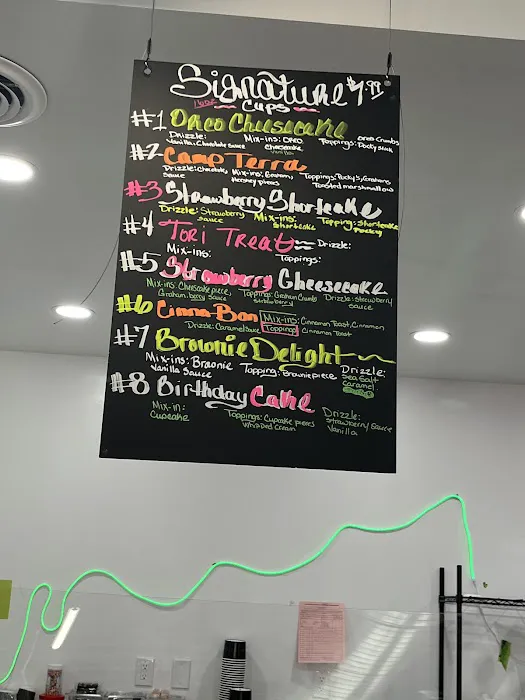 Signature $7.99
16oz Cups
#1 Oreo Cheesecake
Drizzle: Mix-ins: OREO Toppings: Oreo Crumbs
Vanilla, Chocolate Sauce Cheesecake Pocky Stick
#2 Camp Terra
Drizzle: Chocolate Mix-ins: Graham, Toppings: Pocky's, Grahams
Sauce Hershey pieces Toasted marshmallow
#3 Strawberry Shortcake
Drizzle: Strawberry Mix-ins: Topping: Shortcake
Sauce Shortcake Pocky
#4 Tori Treat Drizzle:
Mix-ins: Toppings:
#5 Strawberry Cheesecake
Mix-ins: Cheesecake piece, Toppings: Graham Crumb Drizzle: Strawberry
Graham, berry Sauce Strawberry Sauce
#6 Cinna-Bon Mix-ins: Cinnamon Toast, Cinnamon
Drizzle: Caramel Sauce Toppings: Cinnamon Toast
#7 Brownie Delight
Mix-ins: Brownie Topping: Brownie piece Drizzle:
Vanilla Sauce Sea Salt
Caramel
#8 Birthday Cake
Mix-in: Toppings: Cupcake pieces Drizzle:
Cupcake Whipped Cream Strawberry Sauce
Vanilla